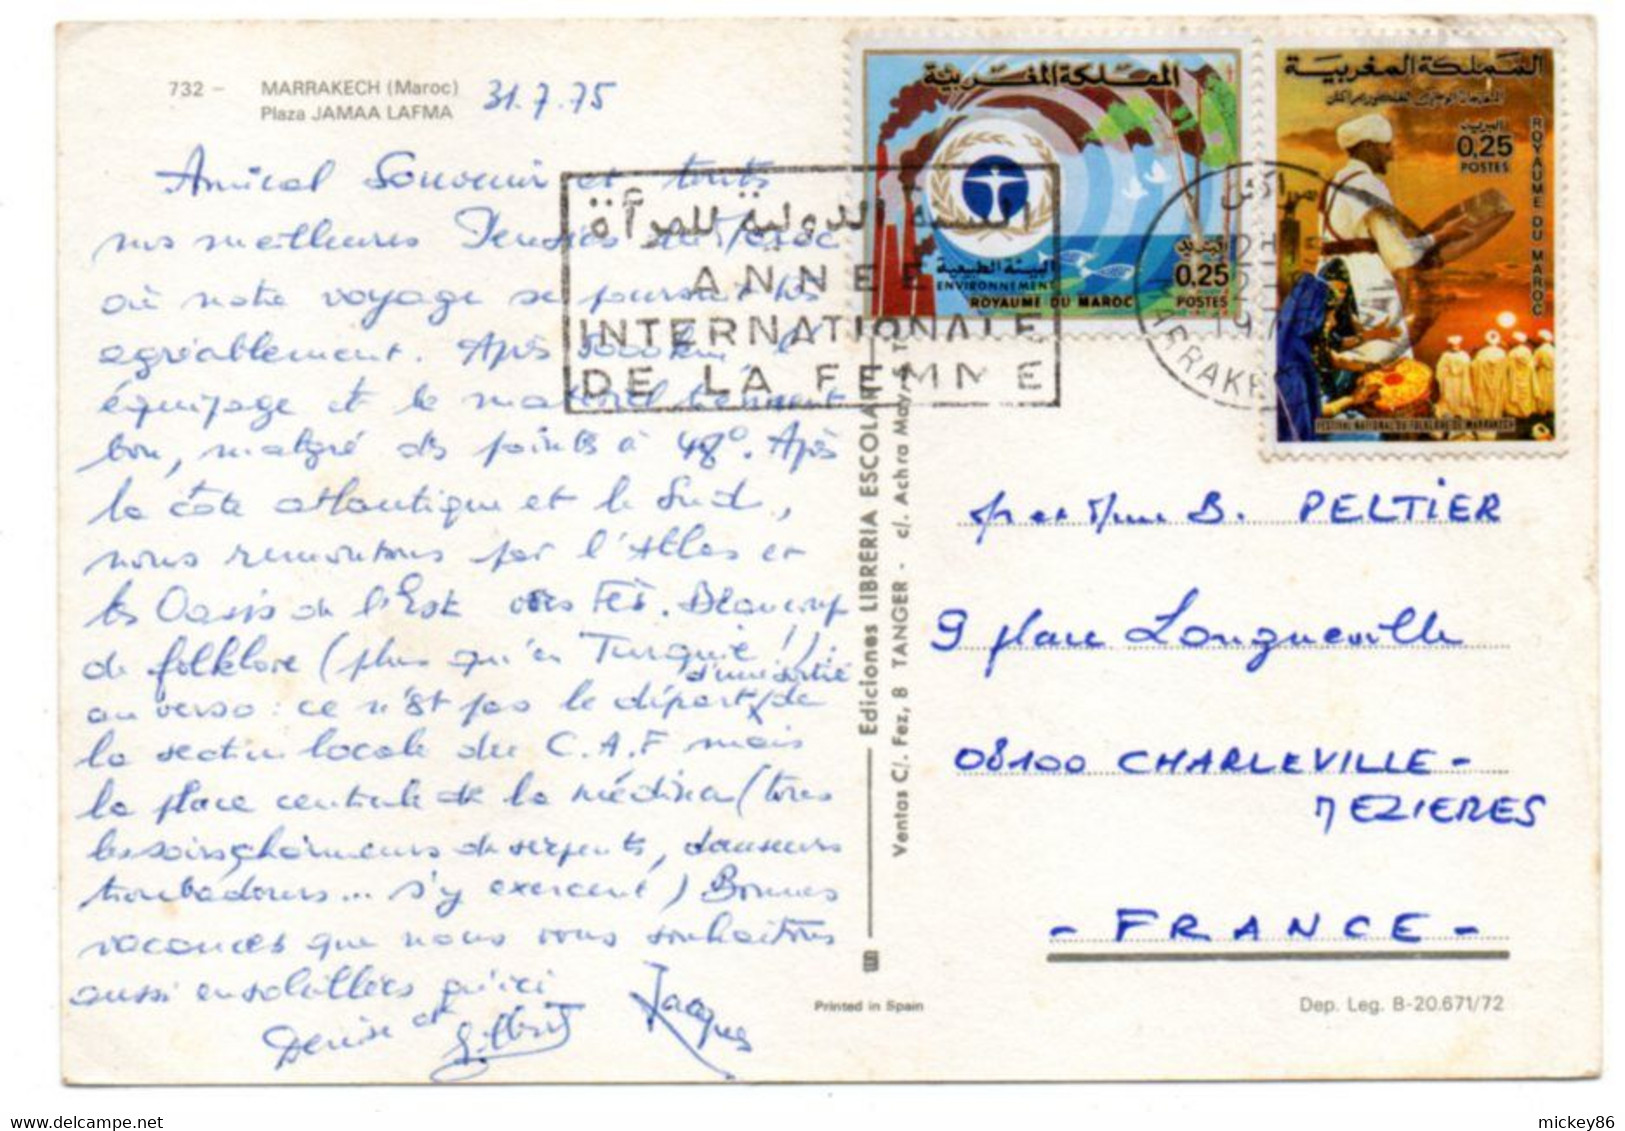 732 – MARRAKECH (Maroc)
Plaza JAMAA LAFMA
31.7.75
Amical Souvenir et toutes
nos meilleures Pensées du Maroc
où notre voyage se poursuit très
agréablement. Après 5000 km l'
équipage et le matériel tiennent
bon, malgré des points à 48°. Après
la côte atlantique et le Sud,
nous remontons par l'Atlas et
les Oasis de l'Est vers Fès. Beaucoup
de folklore (plus qu'en Turquie !)
au verso : ce n'est pas le départ d'une sortie de
la section locale du C.A.F mais
la place centrale de la médina (tous
les soirs charmeurs de serpents, danseurs
troubadours... s'y exercent) Bonnes
vacances que nous vous souhaitons
aussi ensoleillées qu'ici
Denise et Gilbert Jacques
السنة الدولية للمرأة
ANNEE
INTERNATIONALE
DE LA FEMME
المملكة المغربية
البيئة الطبيعية
ENVIRONNEMENT
ROYAUME DU MAROC
البريد
0,25
POSTES
مراكش
MARRAKE
المملكة المغربية
البريد
0,25
POSTES
ROYAUME DU MAROC
FESTIVAL NATIONAL DU FOLKLORE DE MARRAKECH
Ediciones LIBRERIA ESCOLAR
Ventas C/. Fez, 8 TANGER - c/. Achra Mayo, 5 T
Mr et Mme B. PELTIER
9 place Longueville
08100 CHARLEVILLE-
MEZIERES
- FRANCE -
Printed in Spain
Dep. Leg. B-20.671/72
mickey86